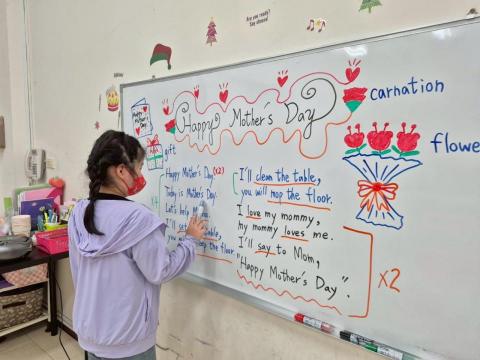 Are you ready?
Stay showed!
Happy Mother's Day
carnation
flowe
Happy Mother's Day
gift
Happy Mother's Day. (x2)
Today is Mother's Day.
Let's help Mom
I'll
you
the floor
I'll clean the table,
you will mop the floor.
I love my mommy,
my mommy loves me.
I'll say to Mom,
"Happy Mother's Day".
x2